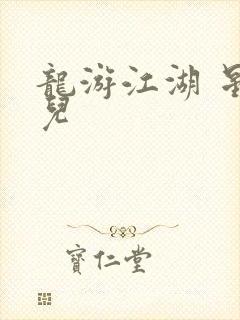 龍游江湖
兒
寶仁堂